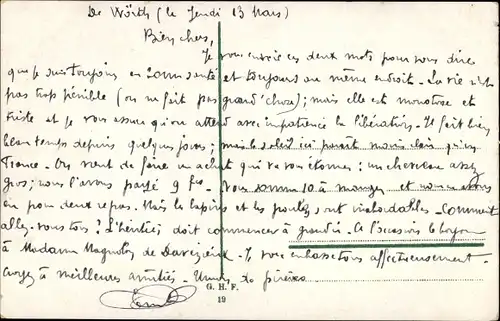 De Wörth (le Jeudi 13 Mars)
Bien chers,
Je vous envoie ces deux mots pour vous dire
que je suis toujours en bonne santé et toujours au même endroit. La vie n'est
pas trop pénible (on ne fait pas grand'chose); mais elle est monotone et
triste et je vous assure qu'on attend avec impatience la libération. Il fait bien
beau temps depuis quelques jours; mais le soleil ici paraît moins clair qu'en
France. On vient de faire un achat qui va vous étonner: un chevreau assez
gros; nous l'avons payé 9 frs. Nous sommes 10 à manger et nous en avons
eu pour deux repas. Mais les lapins et les poules sont inabordables. Comment
allez-vous tous? L'héritier doit commencer à grandir. A l'occasion le bonjour
à Madame Magnolet de Davézieux. Je vous embrasse tous affectueusement.
à meilleures amitiés. de prières
G. H. F.
19